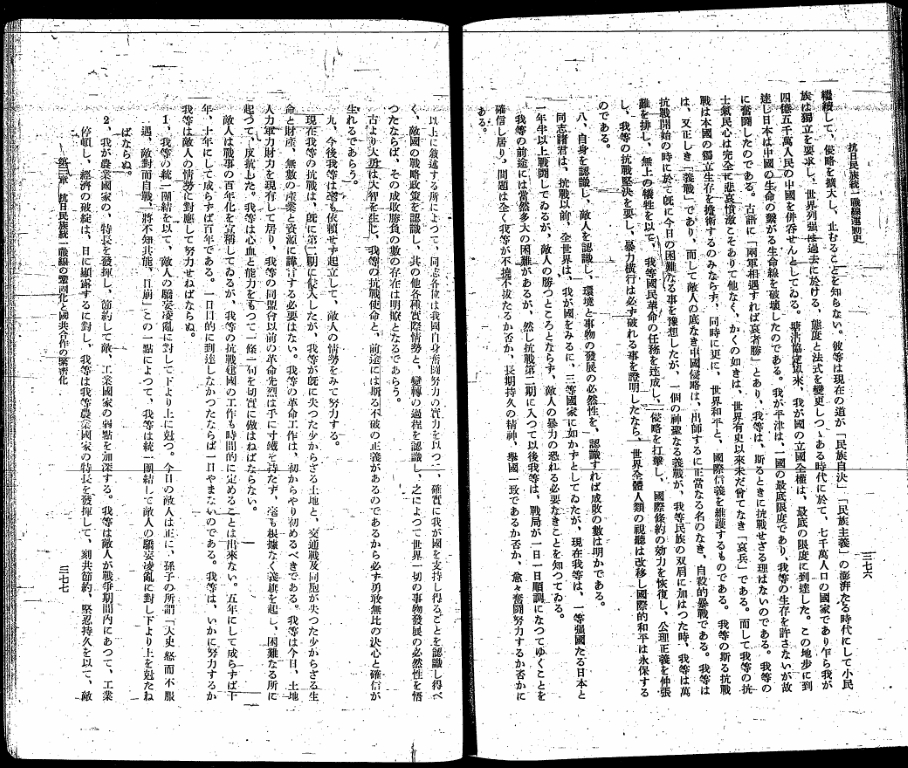 抗日民族統一戰線運動史
三七六
繼續して、侵略を擴大し、止むことを知らない。彼等は現在の道が「民族自決」「民族主義」の澎湃たる時代にして小民
族は獨立を要求し、世界列强は過去に於ける、態度と法式を變更しつゝある時代に於て、七千萬人口の國家であり乍ら我が
四億五千萬人民の中國を併呑せんとしてゐる。塘沽協定以來、我が國の立國全權は、最底の限度に到達した。この地步に到
達し日本は中國の生命の繫がる生命線を破壞したのである。我が平津は、一國の最底限度であり、我等の生存を許さないが故
に奮鬪したのである。古語に「兩軍相遇すれば哀者勝」とあり、我等は、斯るときに抗戰せざる理はないのである。我等の
士氣民心は完全に悲哀憤激こそありて他なく、かくの如きは、世界有史以來未だ曾てなき「哀兵」である。而して我等の抗
戰は本國の獨立生存を擁衛するのみならず、同時に更に、世界和平と、國際信義を維護するものである。我等の斯る抗戰
は、又正しき「義戰」であり、而して敵人の底なき中國侵略は、出師するに正當なる名のなき、自殺的暴戰である。我等は
抗戰開始の時に於て旣に今日の困難なる事を豫想したが、一個の神聖なる義戰が、我等民族の双肩に加はつた時、我等は萬
難を排し、無上の犧牲を以て、我等國民革命の任務を達成し、侵略を打擊し、國際條約の効力を恢復し、公理正義を伸張
し、我等の抗戰堅決を要し、暴力橫行は必ず破れる事を證明したなら、世界全體人類の視聽は改移し國際的和平は永保する
のである。
八、自身を認識し、敵人を認識し、環境と事物の發展の必然性を、認識すれば成敗の數は明かである。
同志諸君は、抗戰以前、全世界は、我が國をみるに、三等國家に如かずとしてゐたが、現在我等は、一等强國たる日本と
一年半以上戰鬪してゐるが、敵人の勝つところとならず、敵人の暴力の恐れる必要なきことを知つてゐる。
我等の前途には當然多大の困難があるが、然し抗戰第二期に入つて以後我等は、戰局が一日一日順調になつてゆくことを
確信し居り。問題は全く我等が不撓不拔たるか否か、長期持久の精神、擧國一致であるか否か、愈々奮鬪努力するか否かに
ある。
以上に敍述する所によつて、同志各位は我國自身奮鬪努力の實力を以つて、確實に我が國を支持し得ることを認識し得べ
く、敵國の戰略政策を認識し、其の他各種實際情勢と、變轉の過程を認識し、之によつて世界一切の事物發展の必然性を悟
つたならば、その成敗勝負の數の存在は明瞭となるであらう。
古より大勇は大智を生じ、我等の抗戰使命と、前途には斯る不破の正義があるのであるから必ず勇敢無比の決心と確信が
生れるであらう。
九、今後我等は誰も依賴せず起立して、敵人の情勢をみて努力する。
現在我等の抗戰は、旣に第二期に侵入したが、我等が旣に失つた少からざる土地と、交通戰及同胞が失つた少からざる生
命と財產、無數の產業と資源に諱言する必要はない。我等の革命工作は、初からやり初めるべきである。我等は今日、土地
人力軍力財力を現有して居り、我等の同盟會以前の革命先烈は手に寸鐵を持たず、毫も根據なく義旗を起し、困難なる所に
起つて、反抗した。我等は心血と能力をもつて一條一句を切實に做はねばならない。
敵人は戰爭の百年化を宣稱してゐるが、我等の抗戰建國の工作も時間的に定めることは出來ない。五年にして成らずば十
年、十年にして成らずば百年である。一日目的に到達しなかつたならば一日やまないのである。我等は、いかに努力するか
我等は敵人の情勢に對應して努力せねばならぬ。
1、我等の統一團結を以て、敵人の驕妄凌亂に對して下より上に尅つ。今日の敵人は正に、孫子の所謂「大吏怒而不服
遇、敵懟而自戰、將不知共能、曰崩」との一點によつて、我等は統一團結して敵人の驕妄凌亂に對し下より上を尅たね
ばならぬ。
2、我が農業國家の、特長を發揮し、節約して敵、工業國家の弱點を加深する。我等は敵人が戰爭期間內にあつて、工業
停頓し、經濟の破綻は、日に顯露するに對し、我等は我等農業國家の特長を發揮して、刻共節約、堅忍持久を以て、敵
第三章 抗日民族統一戰線の鞏固化と國共合作の緊密化
三七七